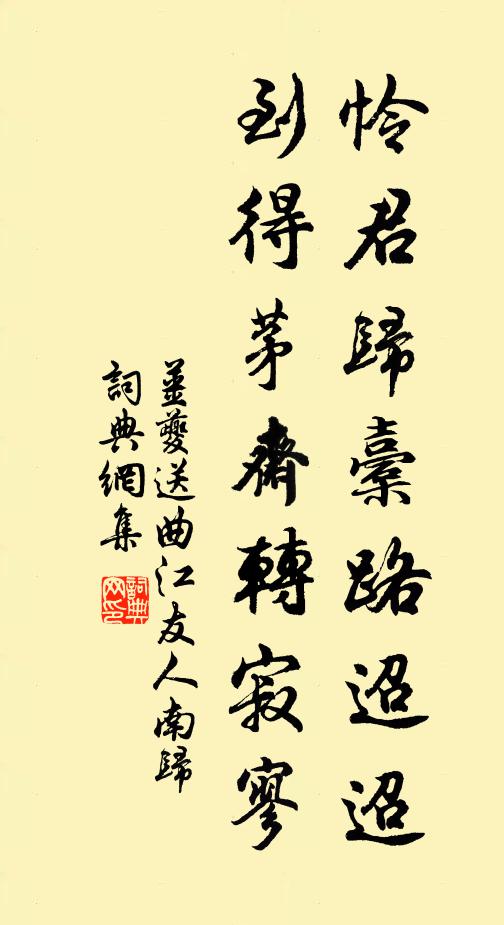 怜君歸橐路迢迢
到得茅齋轉寂寥
姜夔送曲江友人南歸
詞典網集